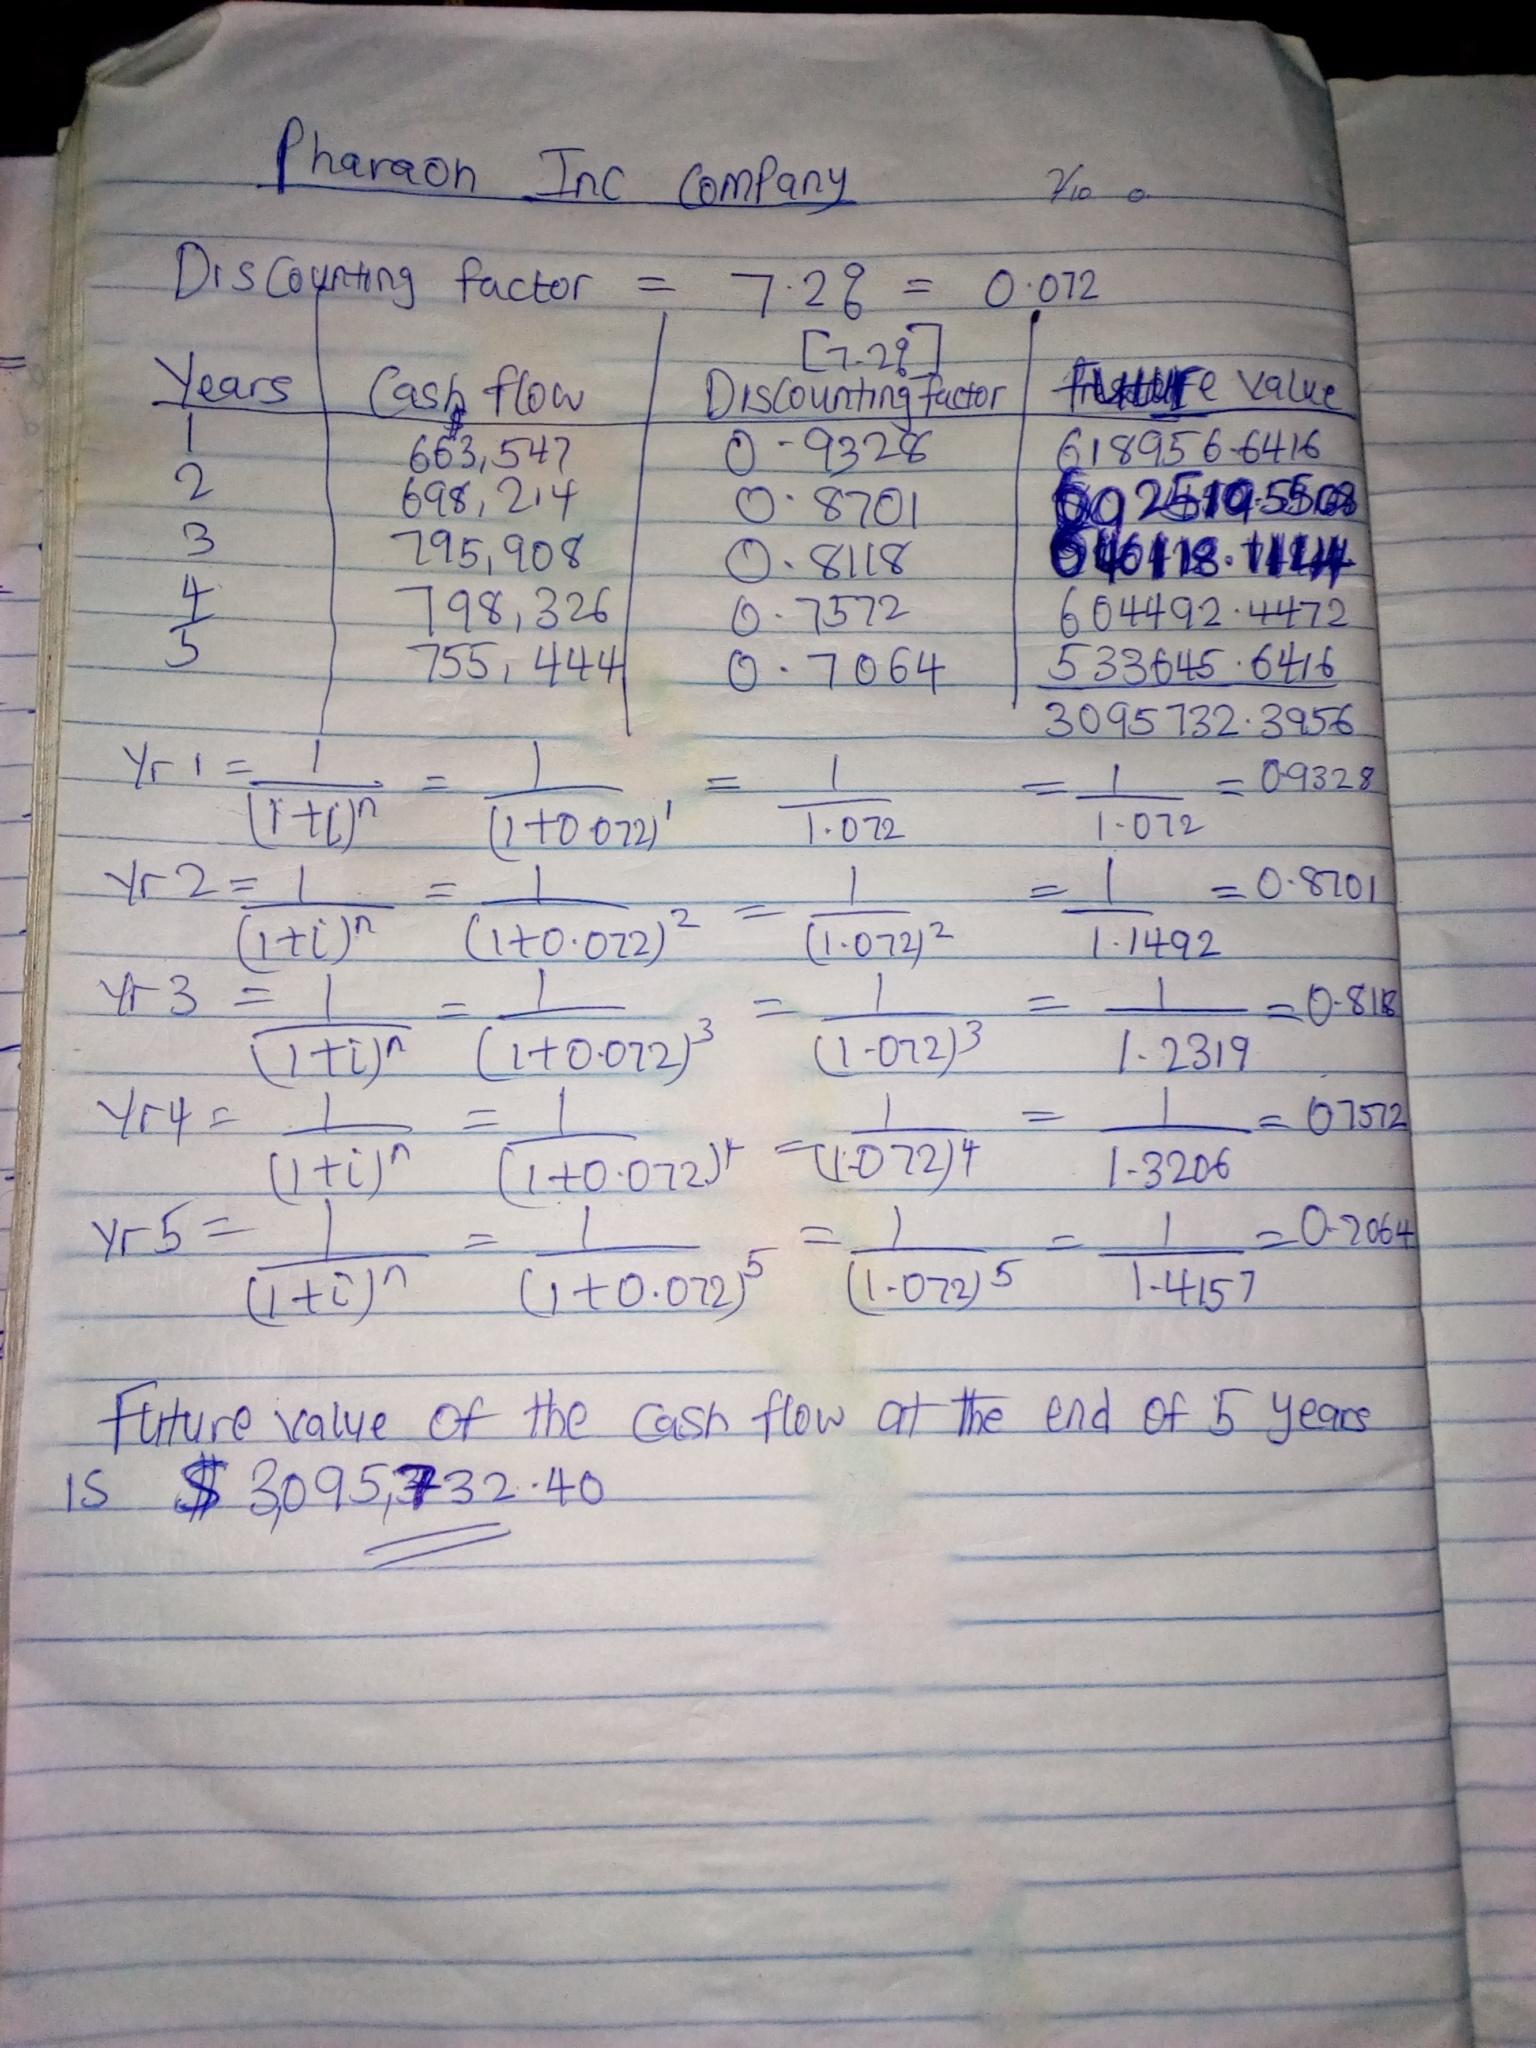 Pharaoh Inc Company
Discounting factor = 7.2% = 0.072
[7.2%]
Years Cash flow Discounting factor Future value
$
1 663,547 0.9328 618956.6416
2 698,214 0.8701
3 795,908 0.8118
4 798,326 0.7572 604492.4472
5 755,444 0.7064 533645.6416
3095732.3956
Yr 1 = 1/(1+i)^n = 1/(1+0.072)^1 = 1/1.072 = 1/1.072 = 0.9328
Yr 2 = 1/(1+i)^n = 1/(1+0.072)^2 = 1/(1.072)^2 = 1/1.1492 = 0.8701
Yr 3 = 1/(1+i)^n = 1/(1+0.072)^3 = 1/(1.072)^3 = 1/1.2319 = 0.8118
Yr 4 = 1/(1+i)^n = 1/(1+0.072)^4 = 1/(1.072)^4 = 1/1.3206 = 0.7572
Yr 5 = 1/(1+i)^n = 1/(1+0.072)^5 = 1/(1.072)^5 = 1/1.4157 = 0.7064
Future value of the cash flow at the end of 5 years
is $3,095,732.40